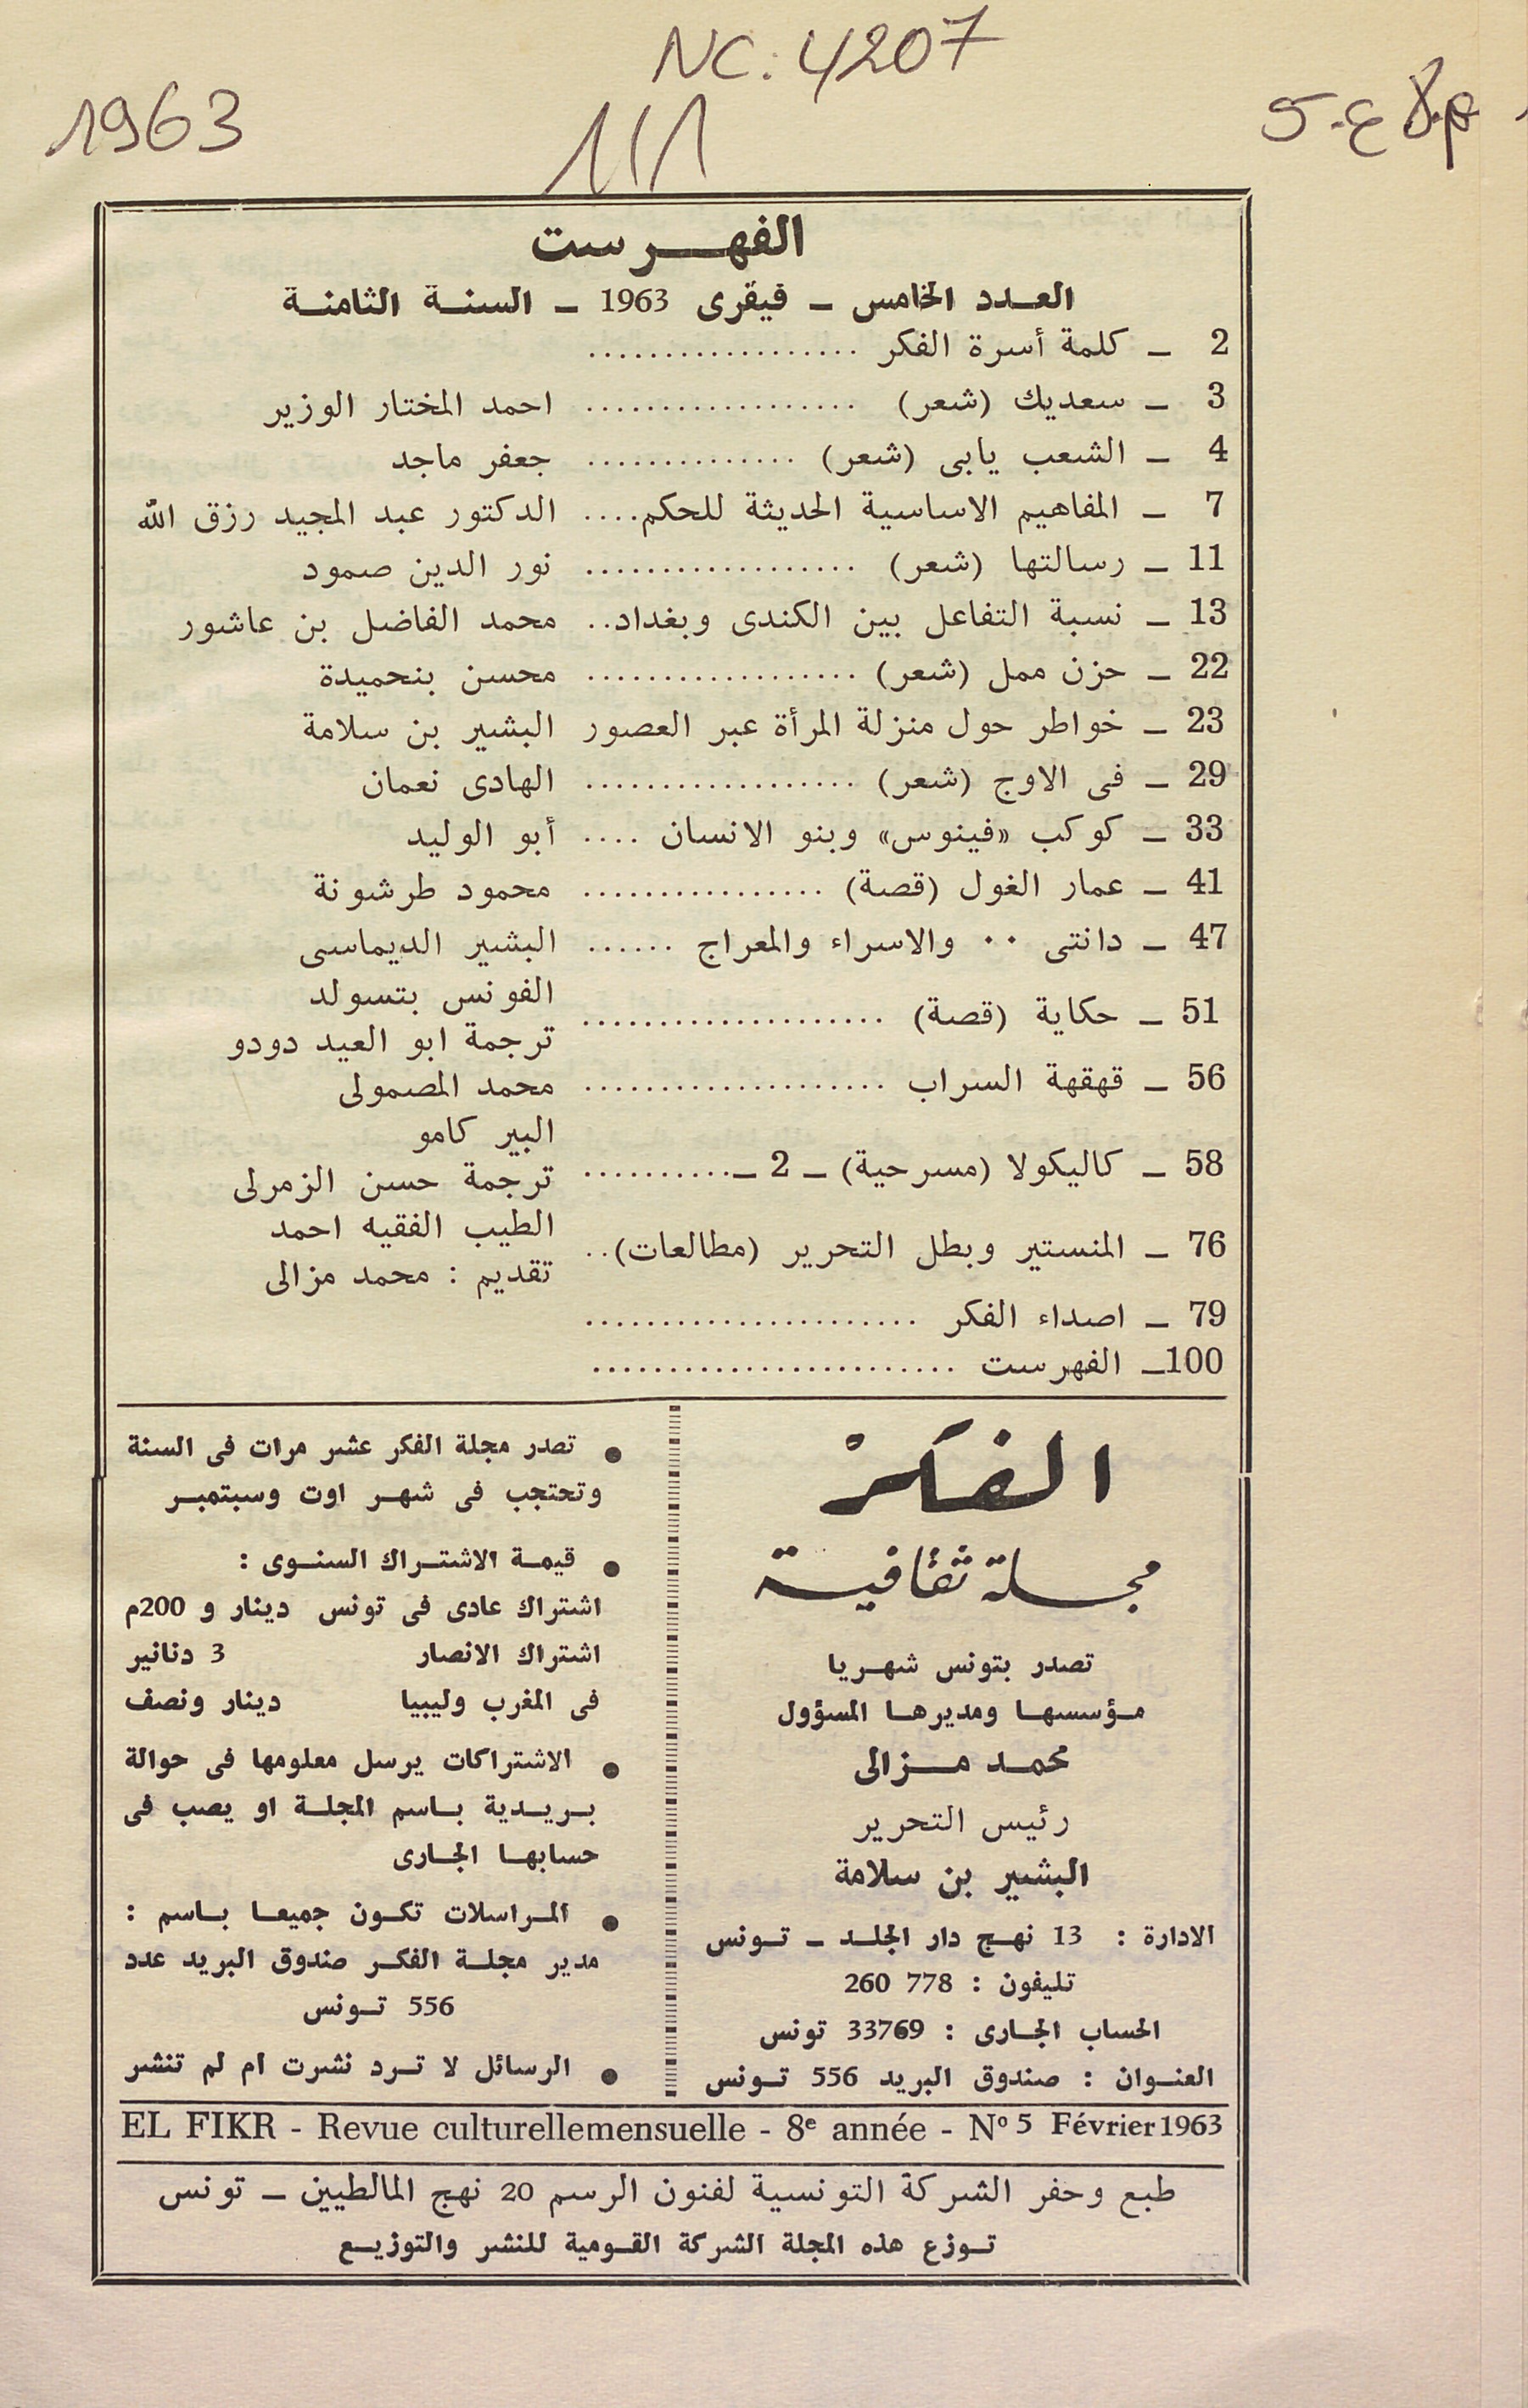 NC: 4207
1963
111
م.8 ع.5
الفهرست
العدد الخامس – فيڤرى 1963 – السنة الثامنة
2 – كلمة أسرة الفكر ..................
3 – سعديك (شعر) .................. احمد المختار الوزير
4 – الشعب يابى (شعر) .............. جعفر ماجد
7 – المفاهيم الاساسية الحديثة للحكم.... الدكتور عبد المجيد رزق الله
11 – رسالتها (شعر) .................. نور الدين صمود
13 – نسبة التفاعل بين الكندى وبغداد.. محمد الفاضل بن عاشور
22 – حزن ممل (شعر) .................. محسن بنحميدة
23 – خواطر حول منزلة المرأة عبر العصور البشير بن سلامة
29 – فى الاوج (شعر) .................. الهادى نعمان
33 – كوكب «فينوس» وبنو الانسان .... أبو الوليد
41 – عمار الغول (قصة) ................ محمود طرشونة
47 – دانتى ٠٠ والاسراء والمعراج ...... البشير الديماسى
51 – حكاية (قصة) .................... الفونس بتسولد
ترجمة ابو العيد دودو
56 – قهقهة السراب .................... محمد المصمولى
58 – كاليكولا (مسرحية) – 2 –.......... البير كامو
ترجمة حسن الزمرلى
76 – المنستير وبطل التحرير (مطالعات).. الطيب الفقيه احمد
تقديم : محمد مزالى
79 – اصداء الفكر ......................
100– الفهرست ........................
الفكر
مجلة ثقافية
تصدر بتونس شهريا
مؤسسها ومديرها المسؤول
محمد مزالى
رئيس التحرير
البشير بن سلامة
الادارة : 13 نهج دار الجلد – تونس
تليفون : 778 260
الحساب الجارى : 33769 تونس
العنوان : صندوق البريد 556 تونس
● تصدر مجلة الفكر عشر مرات فى السنة
وتحتجب فى شهر اوت وسبتمبر
● قيمة الاشتراك السنوى :
اشتراك عادى فى تونس دينار و 200م
اشتراك الانصار 3 دنانير
فى المغرب وليبيا دينار ونصف
● الاشتراكات يرسل معلومها فى حوالة
بريدية باسم المجلة او يصب فى
حسابها الجارى
● المراسلات تكون جميعا باسم :
مدير مجلة الفكر صندوق البريد عدد
556 تونس
● الرسائل لا ترد نشرت ام لم تنشر
EL FIKR - Revue culturellemensuelle - 8e année - No 5 Février 1963
طبع وحفر الشركة التونسية لفنون الرسم 20 نهج المالطيين – تونس
توزع هذه المجلة الشركة القومية للنشر والتوزيع